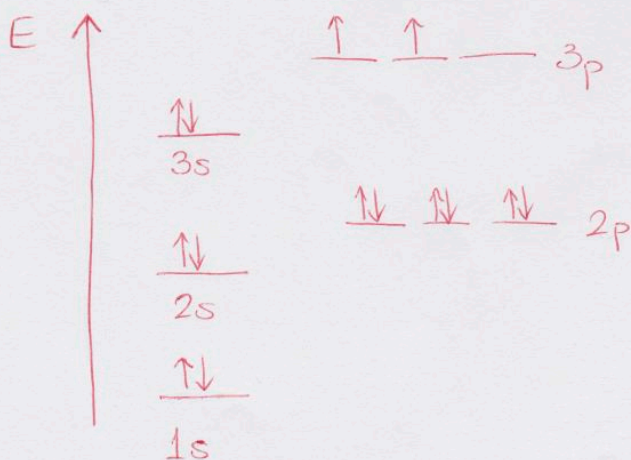 E
3p
3s
2p
2s
1s